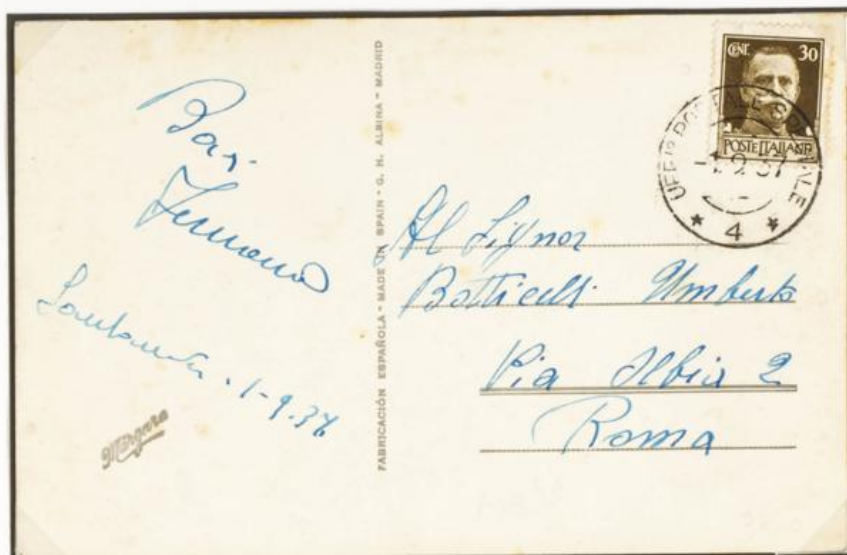 Baci
Santander. 1-9.37
Margara
FABRICACIÓN ESPAÑOLA - MADE IN SPAIN - G. H. ALBINA - MADRID
CENT. 30
POSTE ITALIANE
UFFIO POSTALE SPECIALE
-1.9.37
* 4 *
Al Signor
Botticelli Umberto
Via Albia 2
Roma